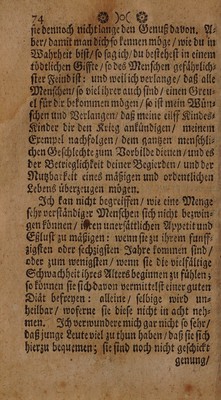 74
sie dennoch nicht lange den Genuß davon. A-
ber/ damit man dich so kennen möge/ wie du in
Wahrheit bist/ so sag ich/ du bestehest in einem
tödtlichen Giffte/ so des Menschen gefährlich-
ster Feind ist: und weil ich verlange/ daß alle
Menschen/ so viel ihrer auch sind/ einen Greu-
el für dir bekommen mögen/ so ist mein Wün-
schen und Verlangen/ daß meine eilff Kindes-
Kinder dir den Krieg ankündigen/ meinem
Exempel nachfolgen/ dem gantzen menschli-
chen Geschlechte zum Vorbilde dienen/ und es
der Betrieglichkeit deiner Begierden/ und der
Nutzbarkeit eines mäßigen und ordentlichen
Lebens überzeugen mögen.
Ich kan nicht begreiffen/ wie eine Menge
sehr verständiger Menschen sich nicht bezwin-
gen können/ ihren unersättlichen Appetit und
Eßlust zu mäßigen: wenn sie zu ihrem fünff-
zigsten oder sechzigsten Jahre kommen sind/
oder zum wenigsten/ wenn sie die vielfältige
Schwachheit ihres Alters beginnen zu fühlen;
so können sie sich davon vermittelst einer guten
Diät befreyen: alleine/ selbige wird un-
heilbar/ woferne sie diese nicht in acht neh-
men. Ich verwundere mich gar nicht so sehr/
daß junge Leute viel zu thun haben/ daß sie sich
hierzu bequemen; sie sind noch nicht geschickt
genung/